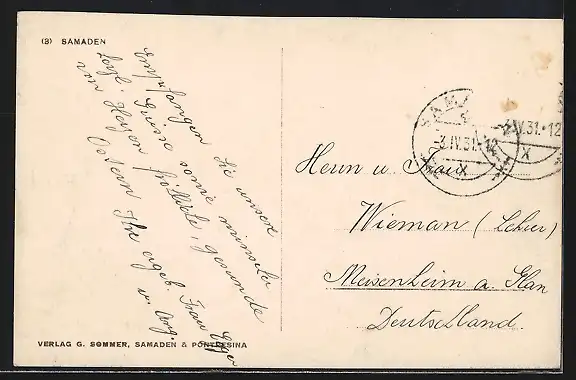 (3) SAMADEN
Empfangen Sie unsere
herzl. Grüsse sowie
von Herzen fröhliche gesunde
Ostern Ihre ergeb. Frau
u. Ang.
SAMADEN
-3.IV.31.-12
X
-3.IV.31.-12
X
Herrn u. Frau
Wieman (Lehrer)
Meisenheim a. Glan
Deutschland.
VERLAG G. SOMMER, SAMADEN & PONTRESINA